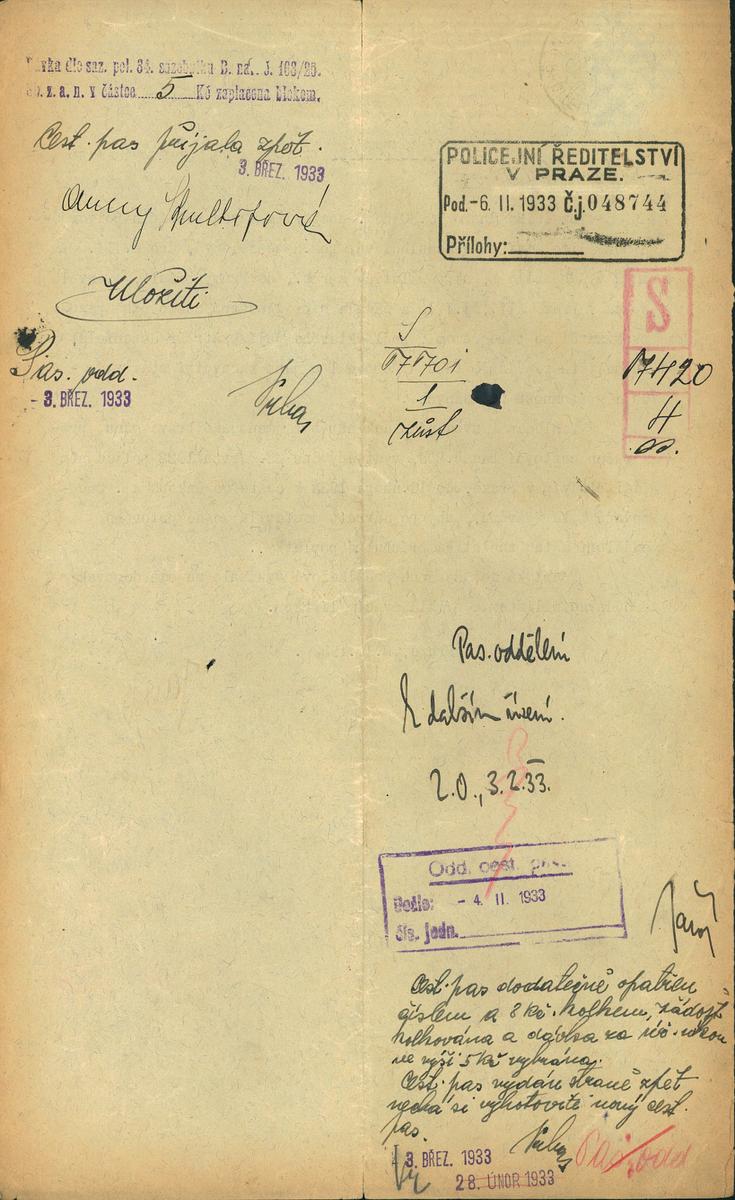 Dávka dle saz. pol. 34. sazebníku B. nář. J. 163/25.
Sb. z. a n. v částce 5 Kč zaplacena blokem.
Cest. pas přijala zpět.
3. BŘEZ. 1933
Anny
Uložiti
Pas. odd.
- 3. BŘEZ. 1933
POLICEJNÍ ŘEDITELSTVÍ
V PRAZE.
Pod. -6. II. 1933 Č.j. 048744
Přílohy:
S
S
1
zůst
17420
4
Pas. oddělení
k dalším řízení.
Z.O., 3.2.33.
Odd. cest. pasů
Došlo: - 4. II. 1933
čís. jedn.
Cest. pas dodatečně opatřen
číslem a 8 Kč. kolkem, žádost
kolkována a dávka za úř. úkon
ve výši 5 Kč vybrána.
Cest. pas vydán straně zpět
nechá si vyhotoviti nový cest.
pas.
3. BŘEZ. 1933
Pas. odd
28. ÚNOR 1933